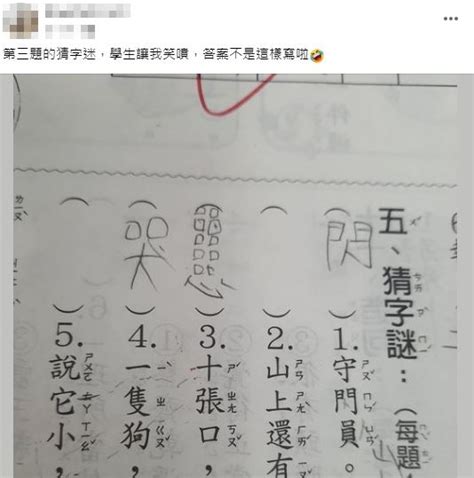 第三題的猜字迷，學生讓我笑噴，答案不是這樣寫啦🤣
五、猜字謎：（每題
（閃）1. 守門員。
（　）2. 山上還有
（　）3. 十張口，
（哭）4. 一隻狗，
（　）5. 說它小，